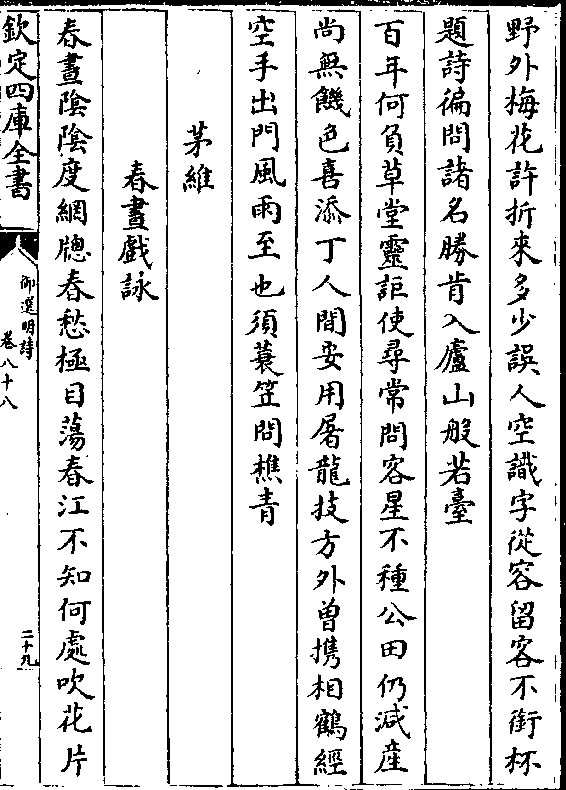 野外梅花許折來多少誤人空識字從容留客不銜杯
題詩徧問諸名勝肯入廬山般若臺
百年何負草堂靈詎使尋常問客星不種公田仍減産
尚無饑色喜添丁人間妄用屠龍技方外曾攜相鶴經
空手出門風雨至也須蓑笠問樵青
茅維
春晝戲詠
春晝陰陰度網牕春愁極目蕩春江不知何處吹花片
欽定四庫全書
御選明詩
卷八十八
二十九